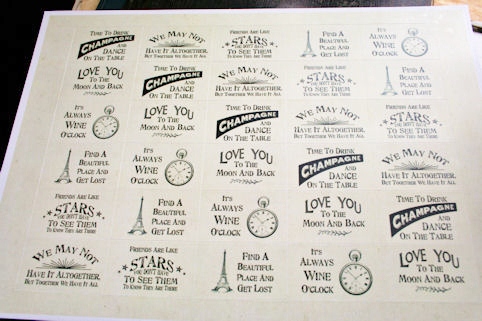 Time To Drink
CHAMPAGNE
AND
DANCE
On The Table
We May Not
Have It Altogether,
But Together We Have It All
Friends Are Like
STARS
You Don't Have
To See Them
To Know They Are There
Find A
Beautiful
Place And
Get Lost
It's
Always
Wine
O'Clock
Love You
To The
Moon And Back
Time To Drink
CHAMPAGNE
AND
DANCE
On The Table
We May Not
Have It Altogether,
But Together We Have It All
Friends Are Like
STARS
You Don't Have
To See Them
To Know They Are There
Find A
Beautiful
Place And
Get Lost
It's
Always
Wine
O'Clock
Love You
To The
Moon And Back
Time To Drink
CHAMPAGNE
AND
DANCE
On The Table
We May Not
Have It Altogether,
But Together We Have It All
Friends Are Like
STARS
You Don't Have
To See Them
To Know They Are There
Find A
Beautiful
Place And
Get Lost
It's
Always
Wine
O'Clock
Love You
To The
Moon And Back
Time To Drink
CHAMPAGNE
AND
DANCE
On The Table
We May Not
Have It Altogether,
But Together We Have It All
Friends Are Like
STARS
You Don't Have
To See Them
To Know They Are There
Find A
Beautiful
Place And
Get Lost
It's
Always
Wine
O'Clock
Love You
To The
Moon And Back
Time To Drink
CHAMPAGNE
AND
DANCE
On The Table
We May Not
Have It Altogether,
But Together We Have It All
Friends Are Like
STARS
You Don't Have
To See Them
To Know They Are There
Find A
Beautiful
Place And
Get Lost
It's
Always
Wine
O'Clock
Love You
To The
Moon And Back